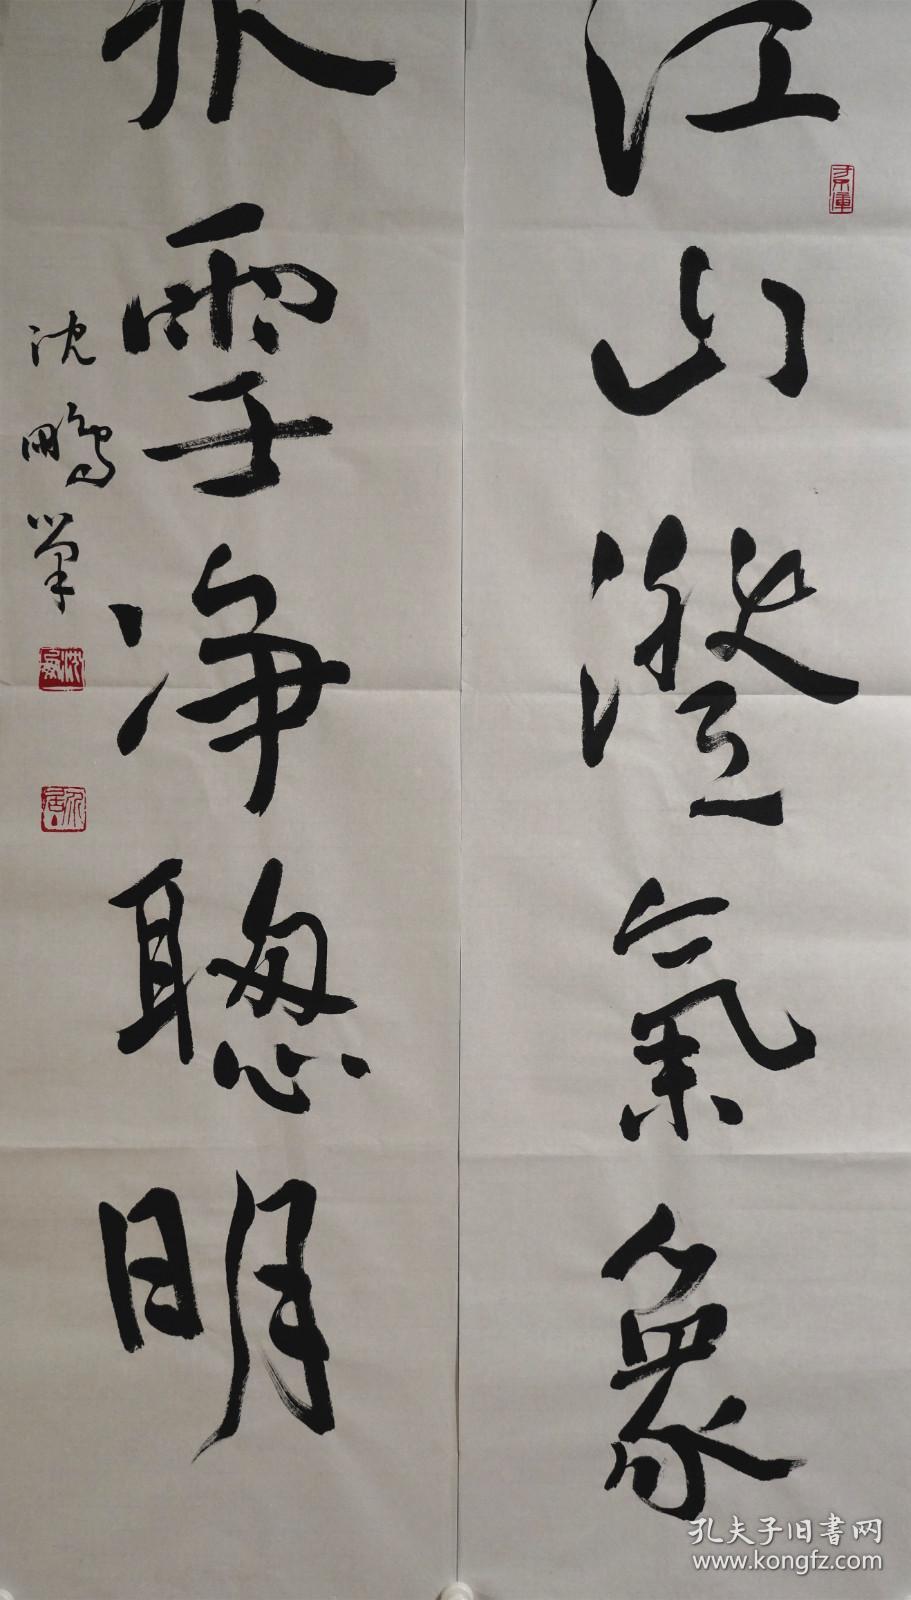 江山澄氣象
雪净聰明
沈鵬筆
孔夫子旧书网
www.kongfz.com